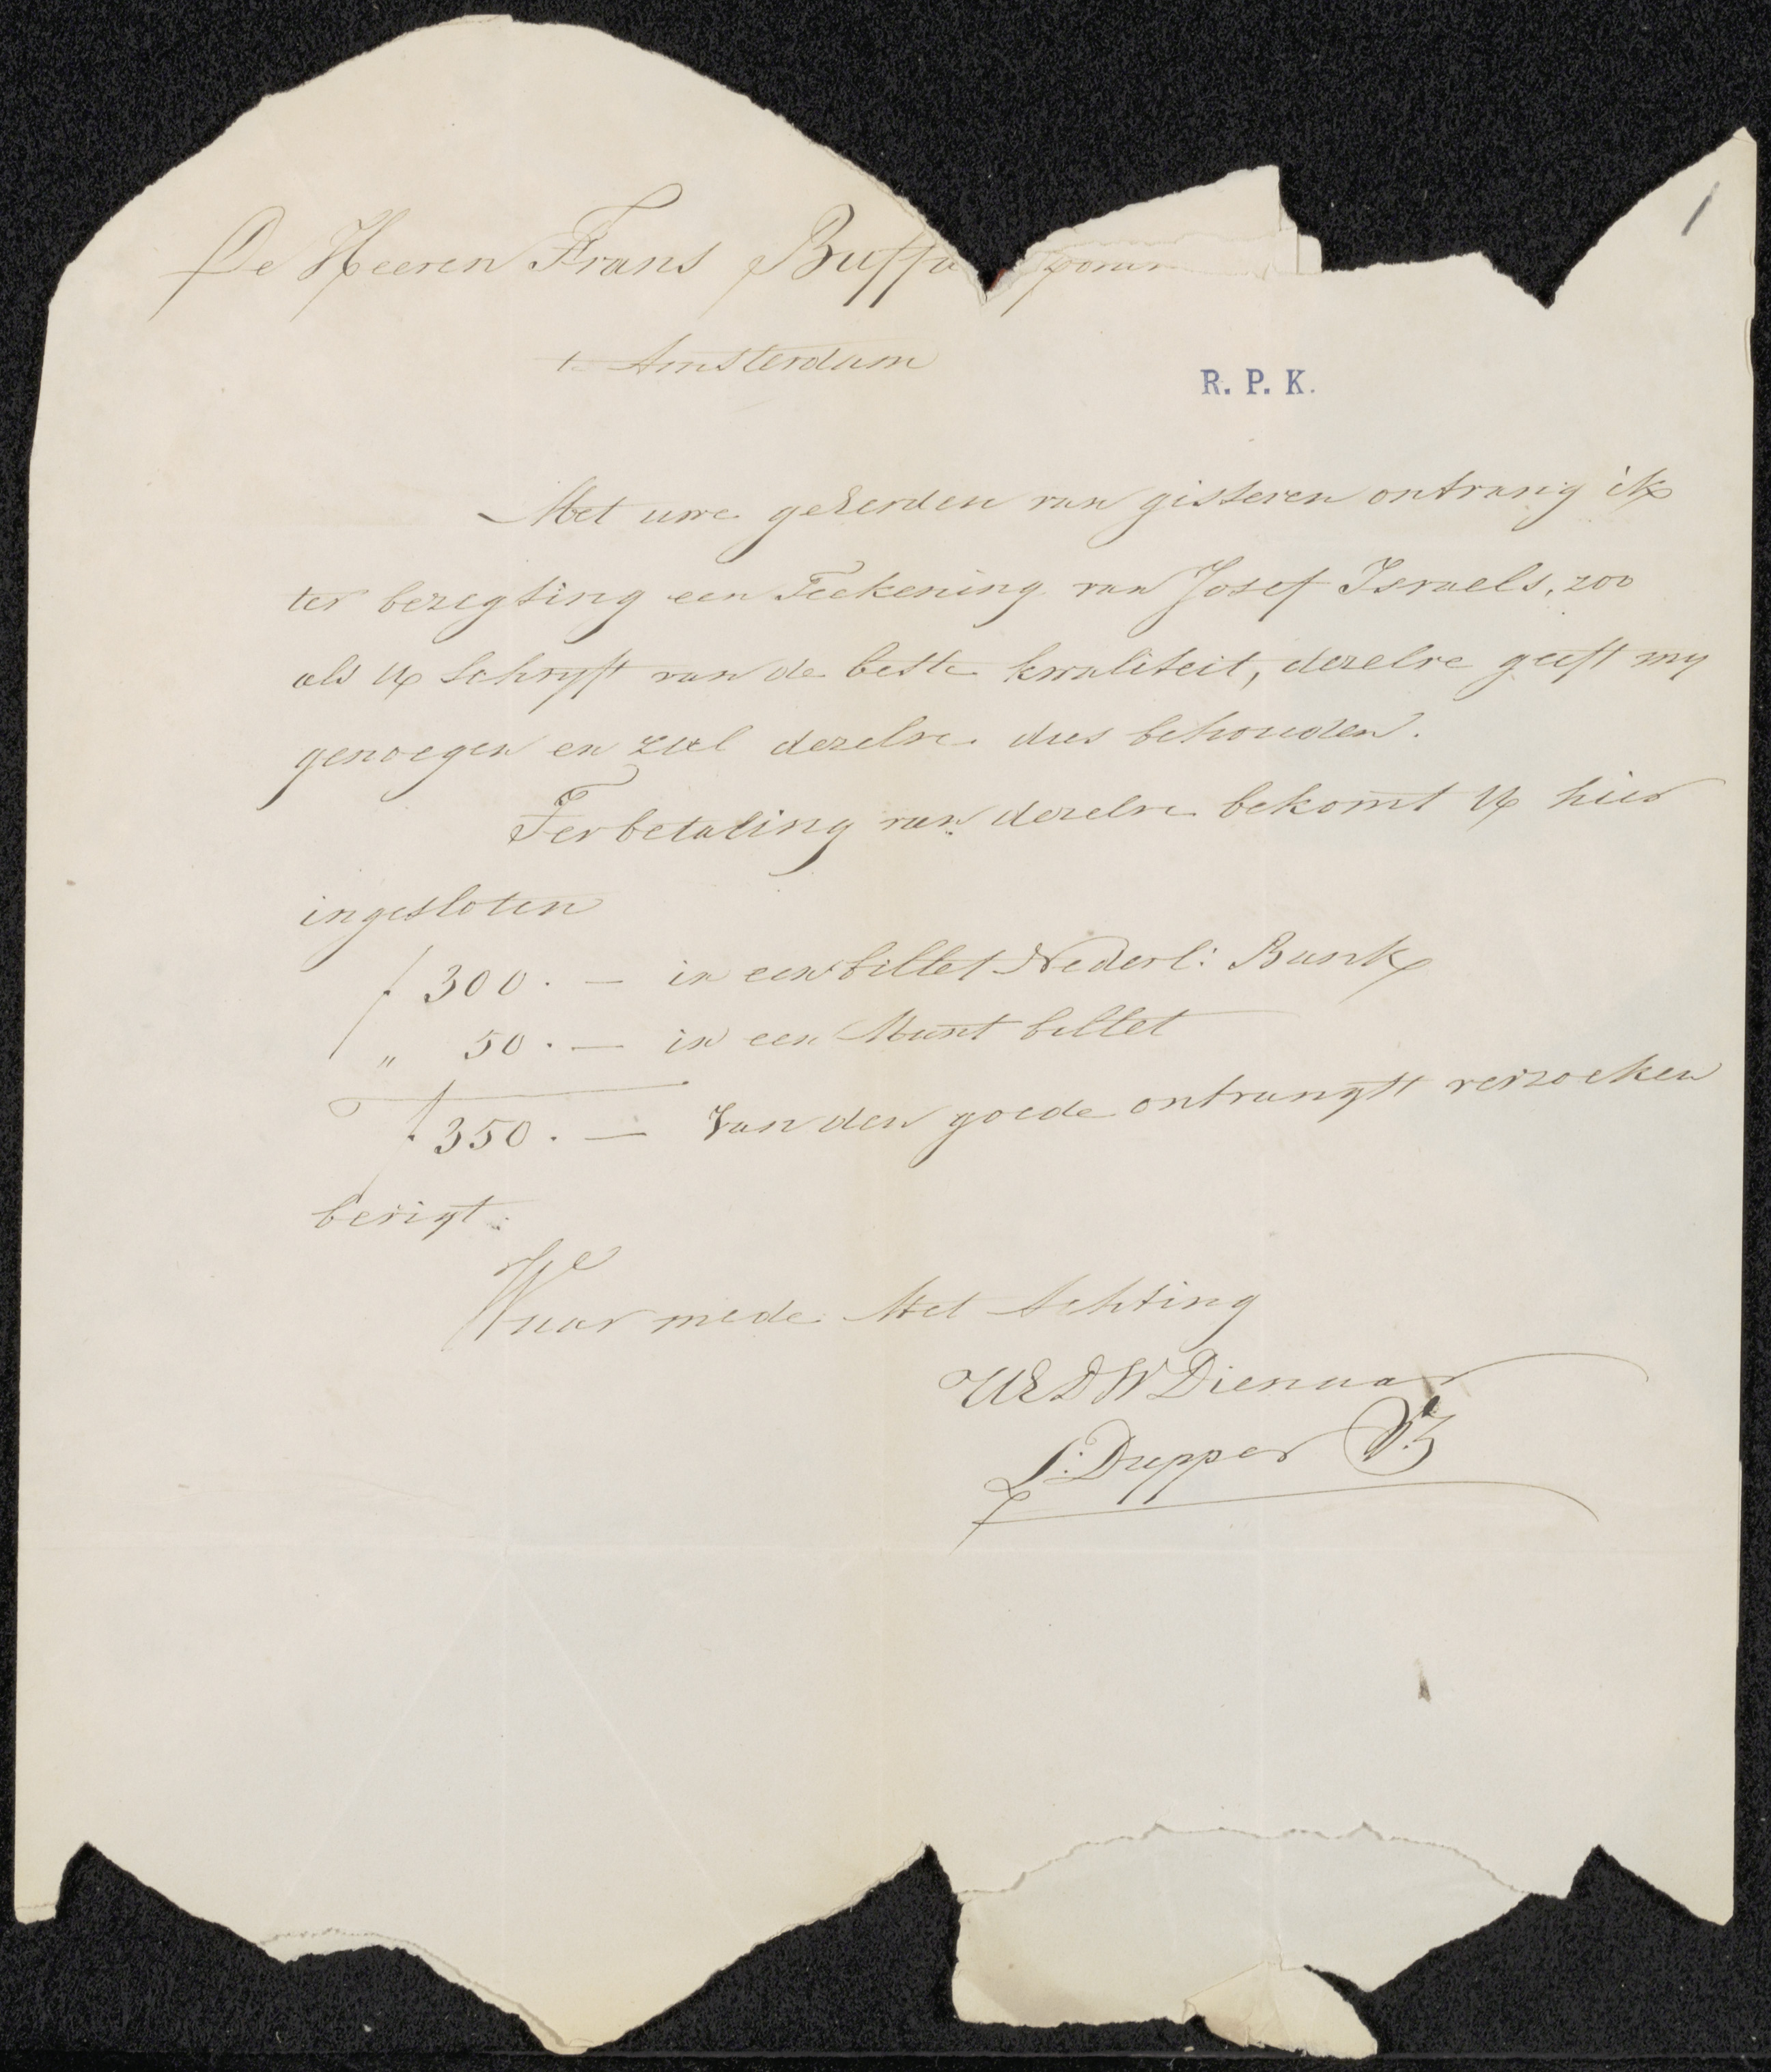 1
De Heeren Frans Buffa Zonen
t Amsterdam
R. P. K.
Met uwe geëerden van gisteren ontvang ik
ter bezegting een Teekening van Josef Israels, zoo
als U schryft van de beste kwaliteit, dezelve geeft my
genoegen en zal dezelve dus behouden.
Ter betaling van dezelve bekomt U hier
ingesloten
f 300. — in een billet Nederl: Bank
" 50. — in een Munt billet
f 350. — Van den goede ontvangst verzoeken
berigt.
Waar mede Met Achting
UEDW Dienaar
L: Dupper